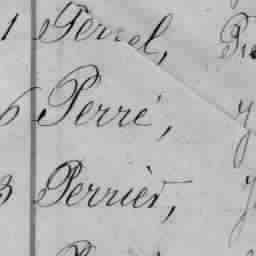 1 Perrel,
6 Perré,
3 Perrier,